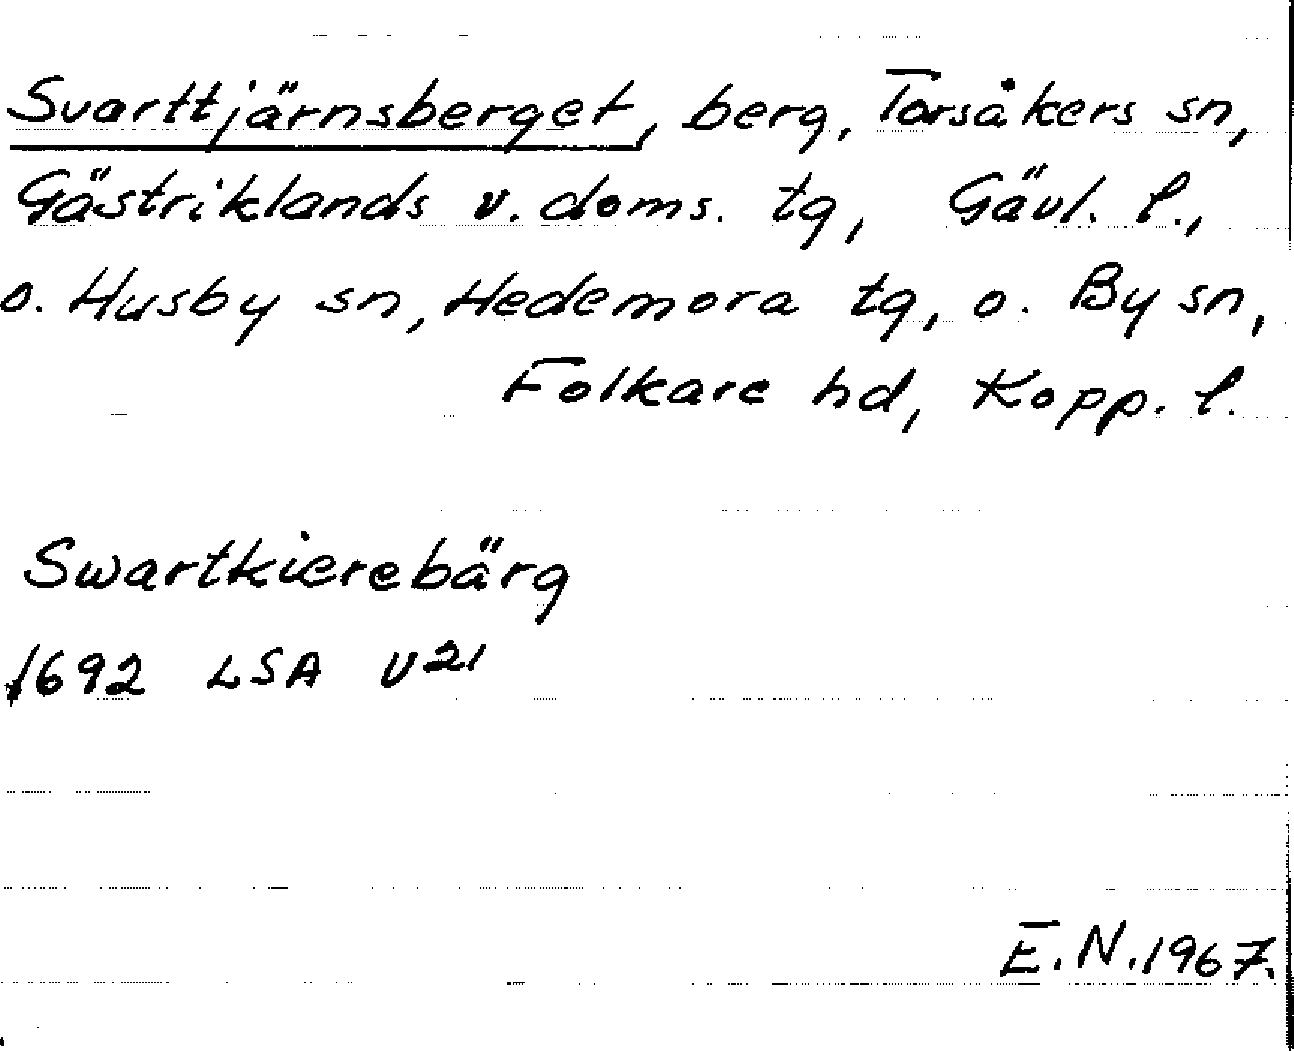 Svarttjärnsberget, berg, Torsåkers sn,
Gästriklands v. doms. tg, Gävl. l.,
o. Husby sn, Hedemora tg, o. By sn,
Folkare hd, Kopp. l.
Swartkierebärg
1692 LSA V21
E.N. 1967.